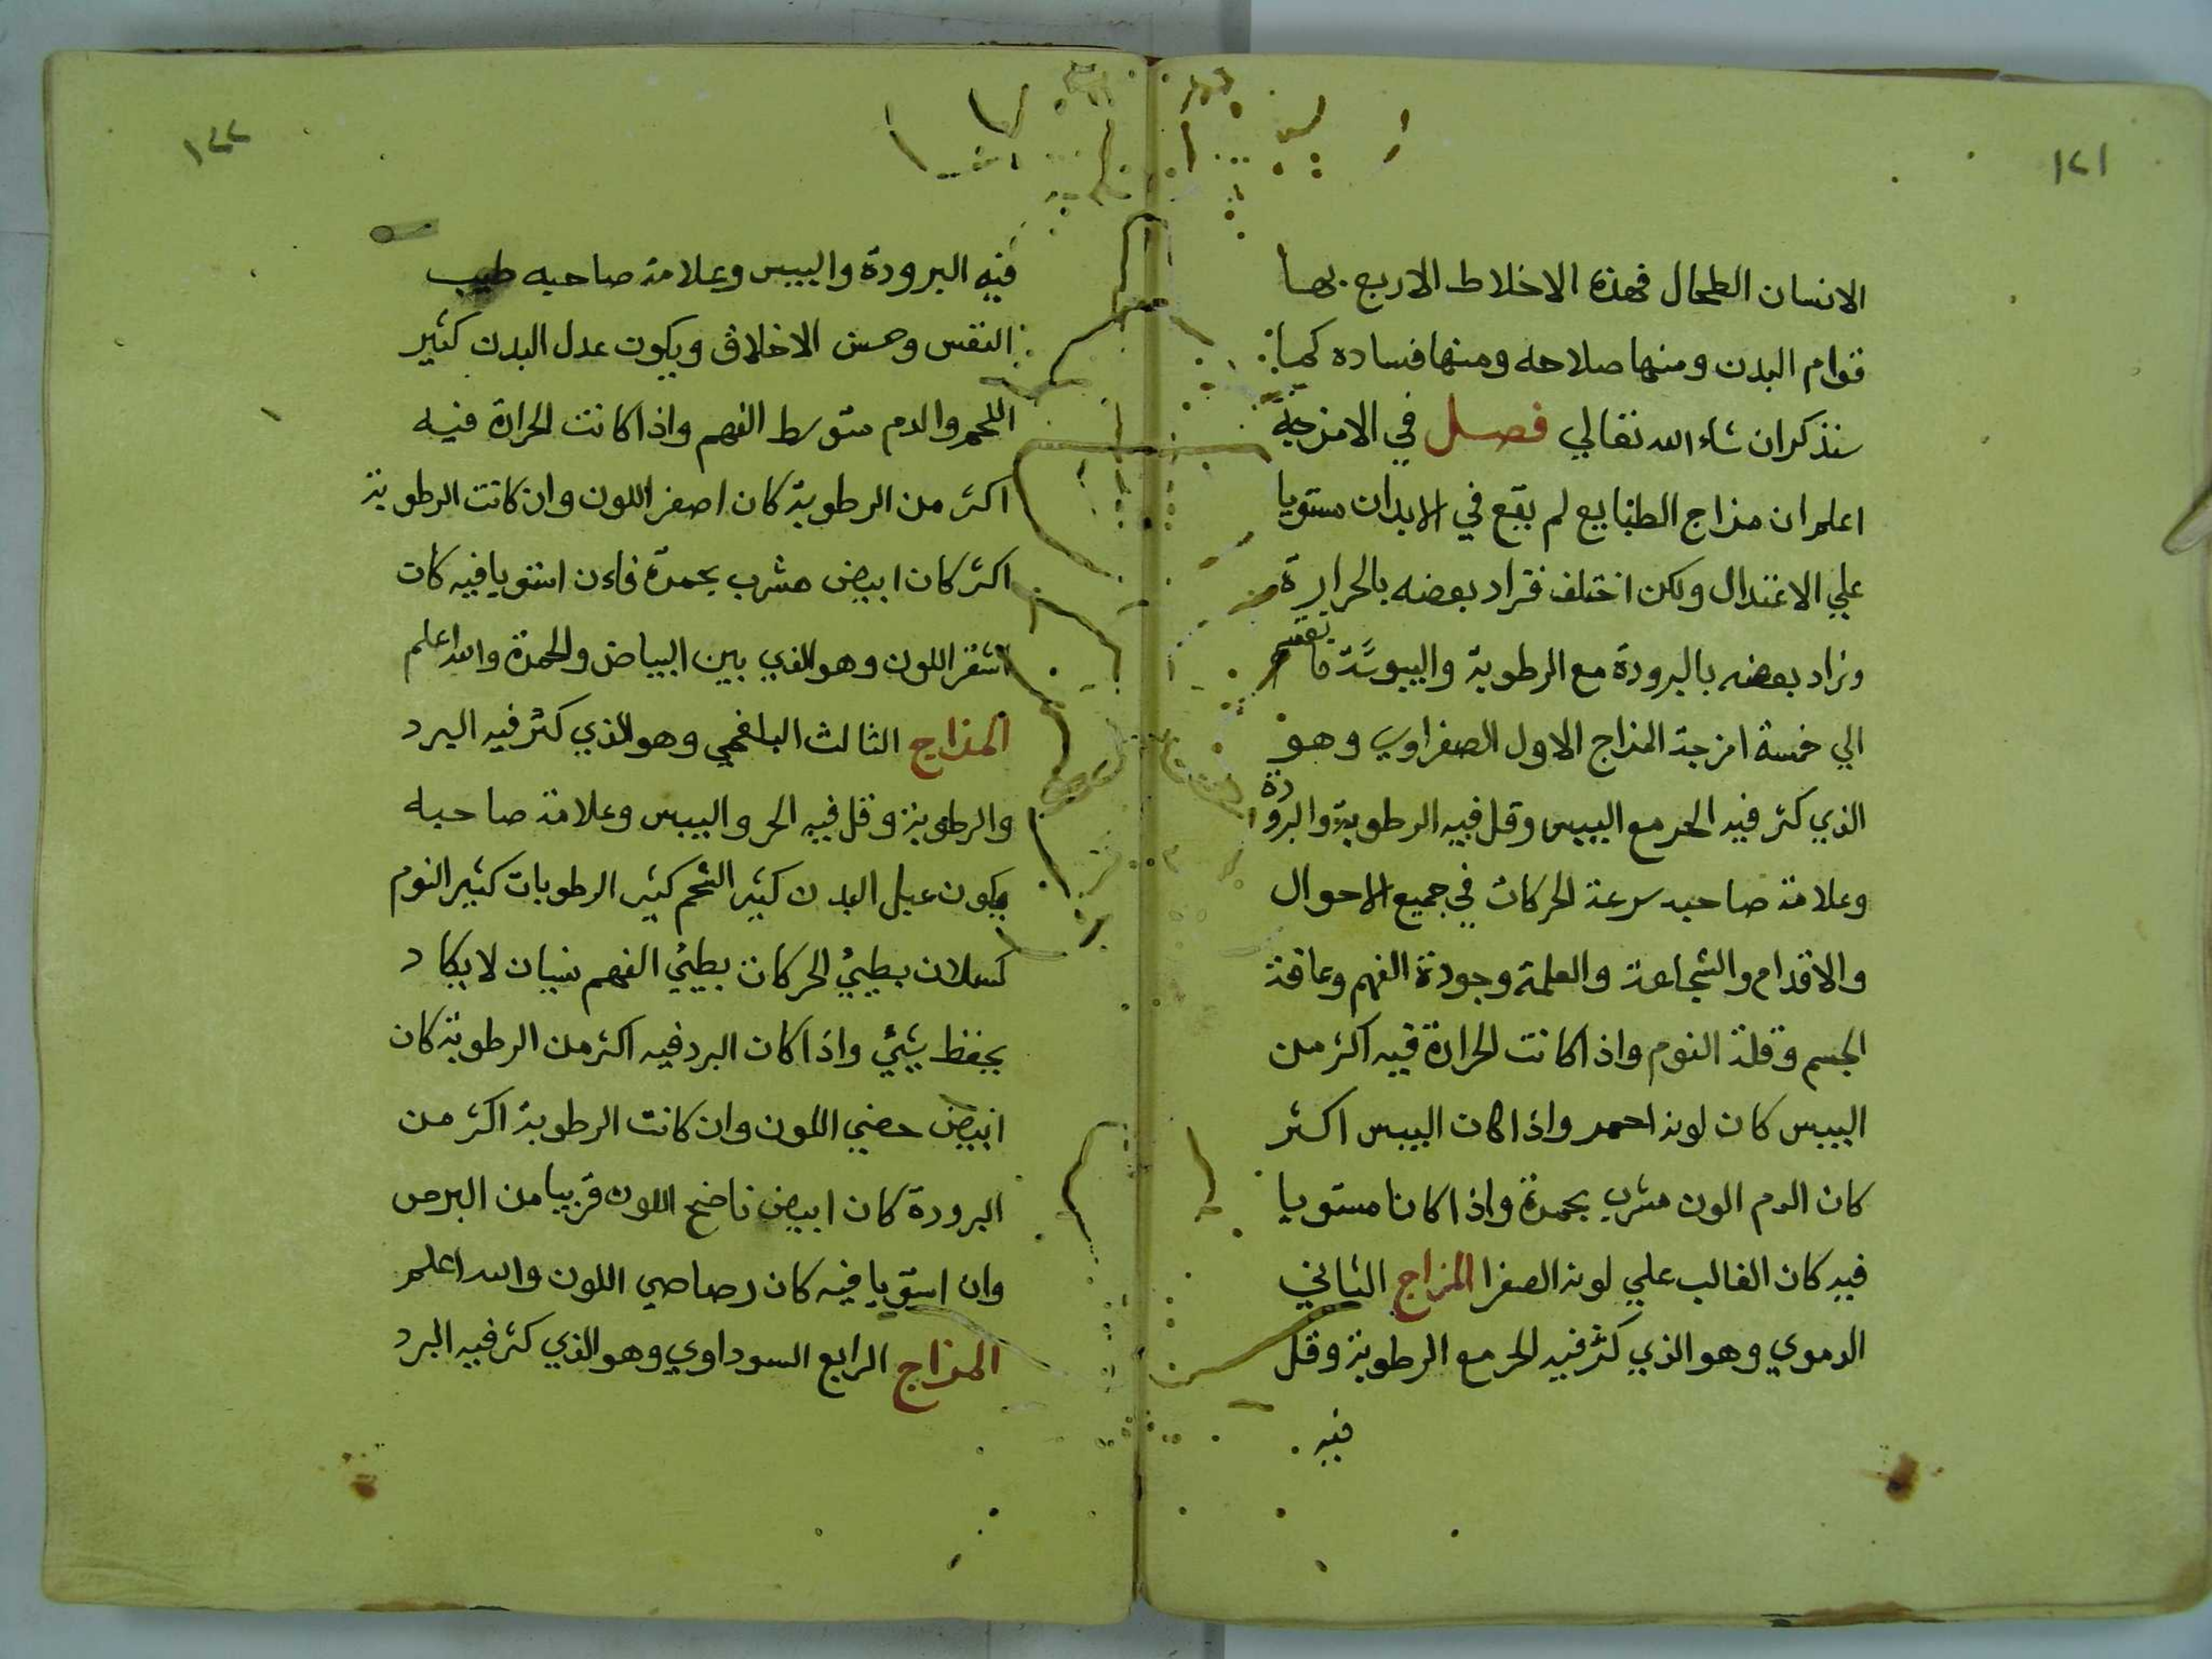 ١٢١
الانسان الطحال فهذه الاخلاط الاربع بها
قوام البدن ومنها صلاحه ومنها فساده كما
سنذكر ان شاء الله تعالي فصل في الامزجة
اعلم ان مزاج الطبايع لم يقع في الابدان مستويا
علي الاعتدال ولكن اختلف فزاد بعضه بالحرارة
وزاد بعضه بالبرودة مع الرطوبة واليبوسة
الي خمسة امزجة المزاج الاول الصفراوي وهو
الذي كثر فيه الحر مع اليبس وقل فيه الرطوبة والبرودة
وعلامة صاحبه سرعة الحركات في جميع الاحوال
والاقدام والشجاعة والعلمة وجودة الفهم وعافة
الجسم وقلة النوم واذا كانت الحرارة فيه اكثر من
اليبس كان لونه احمر واذا كان اليبس اكثر
كان الدم الون مشرب بحمرة واذا كانا مستويا
فيه كان الغالب علي لونه الصفرا المزاج الثاني
الدموي وهو الذي كثر فيه الحر مع الرطوبة وقل
فيه
١٢٢
فيه البرودة واليبس وعلامة صاحبه طيب
النفس وحسن الاخلاق ويكون عدل البدن كثير
اللحم والدم متوسط الفهم واذا كانت الحرارة فيه
اكثر من الرطوبة كان اصفر اللون وان كانت الرطوبة
اكثر كان ابيض مشرب بحمرة فاءن استويا فيه كان
اشقر اللون وهو الذي بين البياض والحمرة والله اعلم
المزاج الثالث البلغمي وهو الذي كثر فيه البرد
والرطوبة وقل فيه الحر واليبس وعلامة صاحبه
يكون عبل البدن كثير الشحم كثير الرطوبات كثير النوم
كسلان بطيئ الحركات بطيئ الفهم نسيان لا يكاد
يحفظ شيئ واذا كان البرد فيه اكثر من الرطوبة كان
ابيض حصي اللون وان كانت الرطوبة اكثر من
البرودة كان ابيض ناضح اللون قريبا من البرص
وان استويا فيه كان رصاصي اللون والله اعلم
المزاج الرابع السوداوي وهو الذي كثر فيه البرد